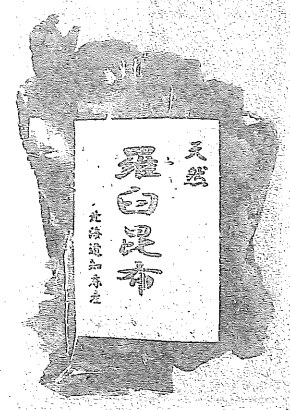 天然
羅臼昆布
北海道知床産